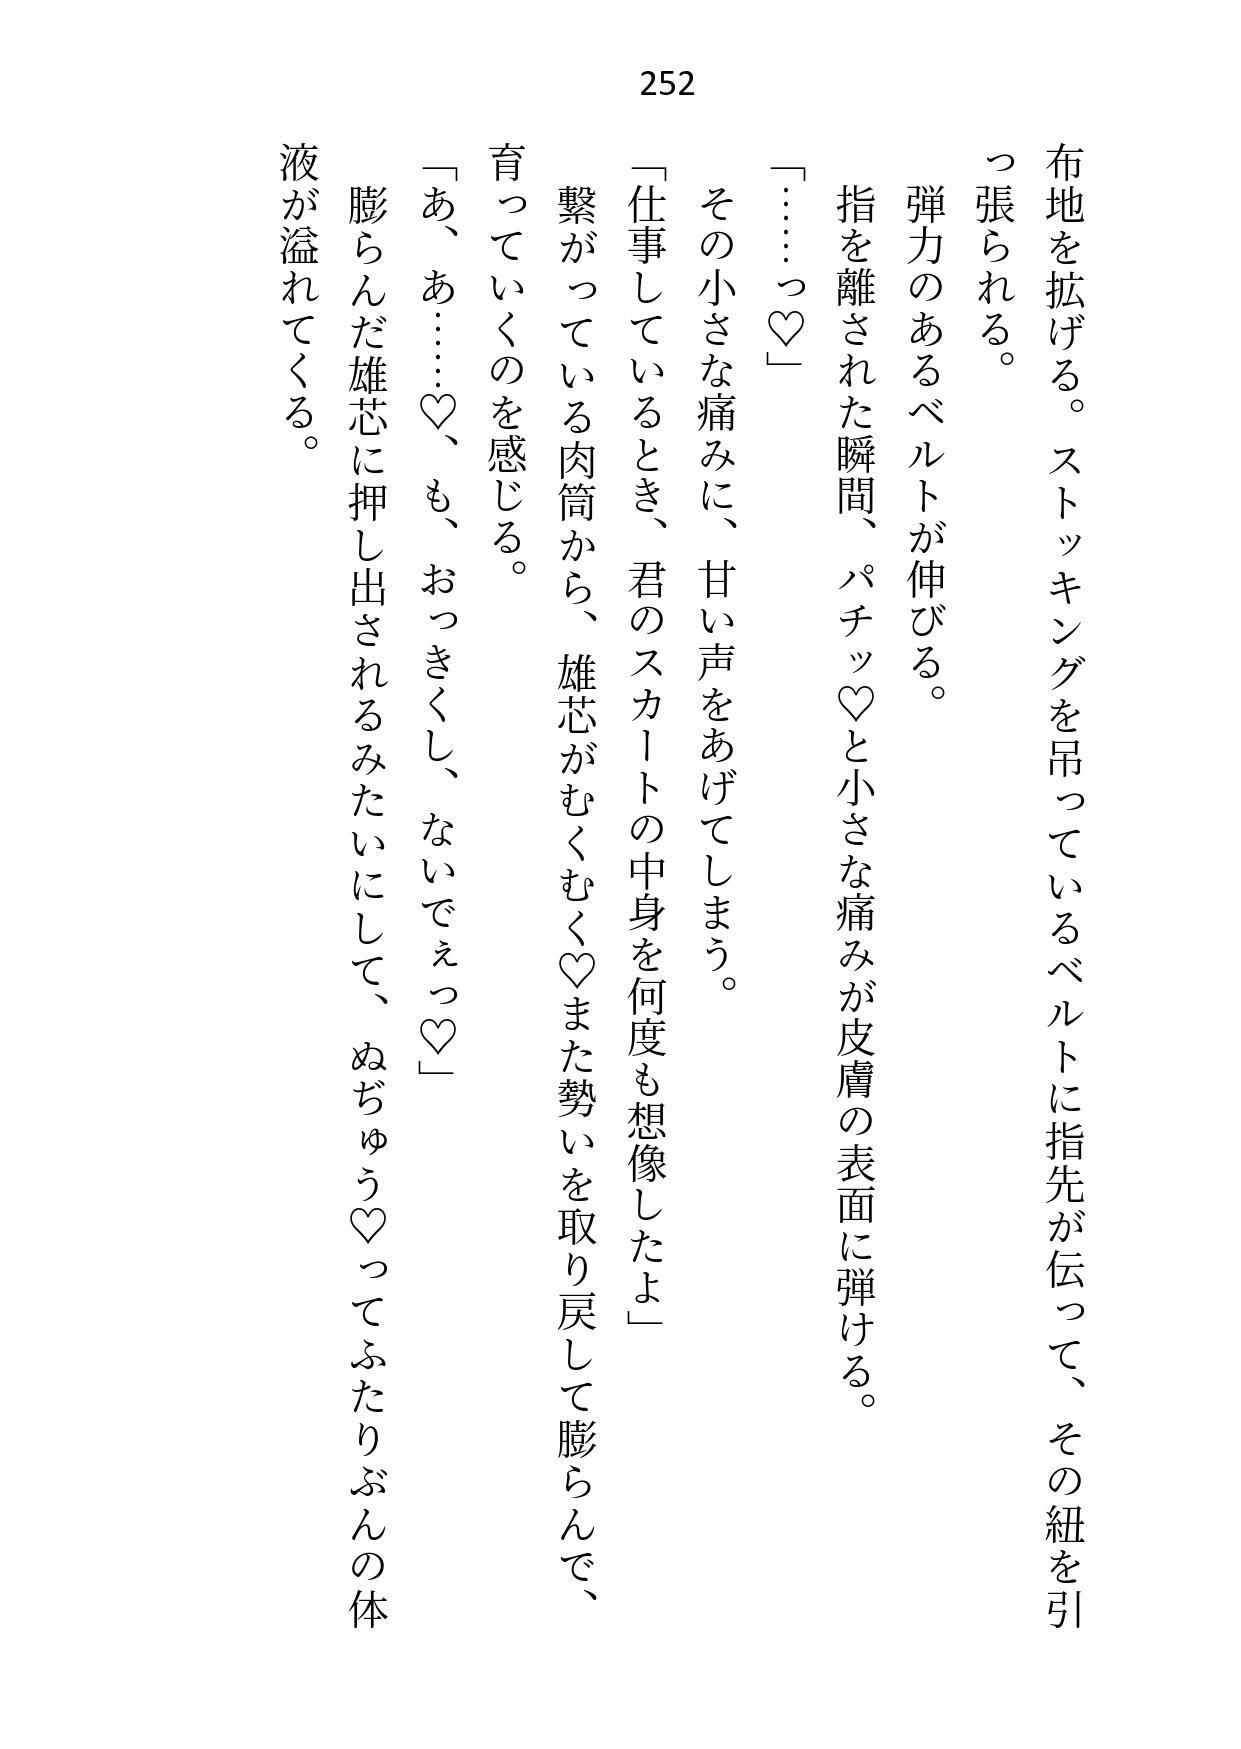 252
布地を拡げる。ストッキングを吊っているベルトに指先が伝って、その紐を引
っ張られる。
弾力のあるベルトが伸びる。
指を離された瞬間、パチッ♡と小さな痛みが皮膚の表面に弾ける。
「……っ♡」
その小さな痛みに、甘い声をあげてしまう。
「仕事しているとき、君のスカートの中身を何度も想像したよ」
繋がっている肉筒から、雄芯がむくむく♡また勢いを取り戻して膨らんで、
育っていくのを感じる。
「あ、あ……♡、も、おっきくし、ないでぇっ♡」
膨らんだ雄芯に押し出されるみたいにして、ぬぢゅう♡ってふたりぶんの体
液が溢れてくる。